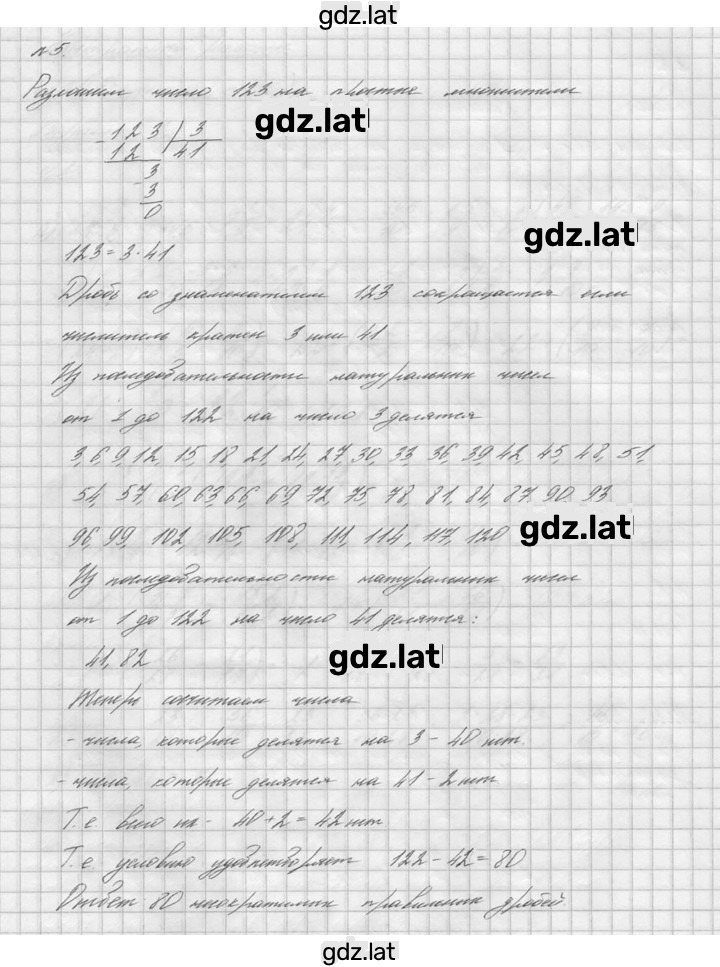 gdz.lat
№5.
Разложим число 123 на простые множители
gdz.lat
- 123 | 3
12 41
3
- 3
0
gdz.lat
123 = 3 · 41
Дробь со знаменателем 123 сокращается если
числитель кратен 3 или 41
Из последовательности натуральных чисел
от 1 до 122 на число 3 делятся
3, 6, 9, 12, 15, 18, 21, 24, 27, 30, 33, 36, 39, 42, 45, 48, 51,
54, 57, 60, 63, 66, 69, 72, 75, 78, 81, 84, 87, 90, 93
96, 99, 102, 105, 108, 111, 114, 117, 120
gdz.lat
Из последовательности натуральных чисел
от 1 до 122 на число 41 делятся:
41, 82
gdz.lat
Теперь сосчитаем числа
- числа, которые делятся на 3 - 40 шт.
- числа, которые делятся на 41 - 2 шт
Т.е всего их - 40 + 2 = 42 шт
Т.е. условию удовлетворяет 122 - 42 = 80
Ответ 80 несократимых правильных дробей.
gdz.lat